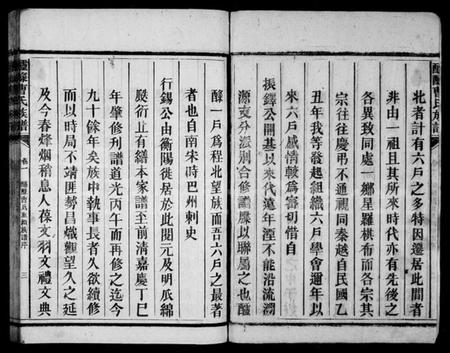 北者計有六戶之多特因遷居此間者
非由一祖且其所來時代亦有先後之
各異致同處一鄉星羅棋布而各宗其
宗往往慶弔不通視同秦越自民國乙
丑年我等發起組織六戶學會邇年以
來六戶感情較爲密切惟自
振鐸公開基以來代遠年湮不能沿流溯
源支分派別合修譜牒以聯屬之也醶
醶一戶爲程北望族而吾六戶之最著
者也自南宋時巴州刺史
行錫公由衡陽徙居於此閱元及明瓜綿
瓞衍並有續本家譜至前淸嘉慶丁巳
年肇修利譜道光丙午而再修之迄今
九十餘年矣族中執事長者久欲續修
而以時局不靖匪勢昌熾觀望久之延
及今春烽烟稍息人葆文羽文禮文典
曹氏族譜
卷一
三
曹氏族譜